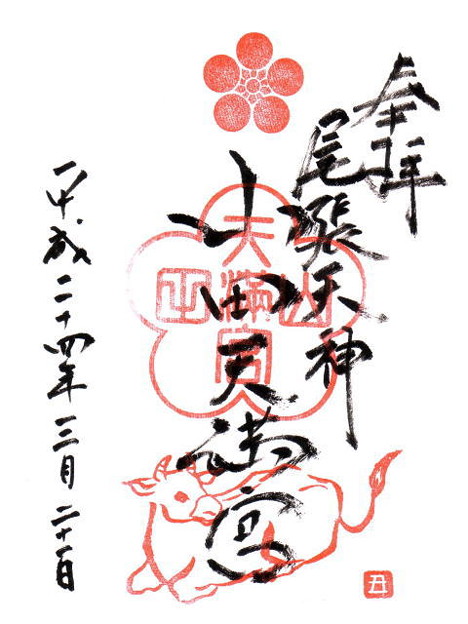 奉拝
尾張天神
山田天満宮
平成二十四年三月二十一日
天満宮
山
丑